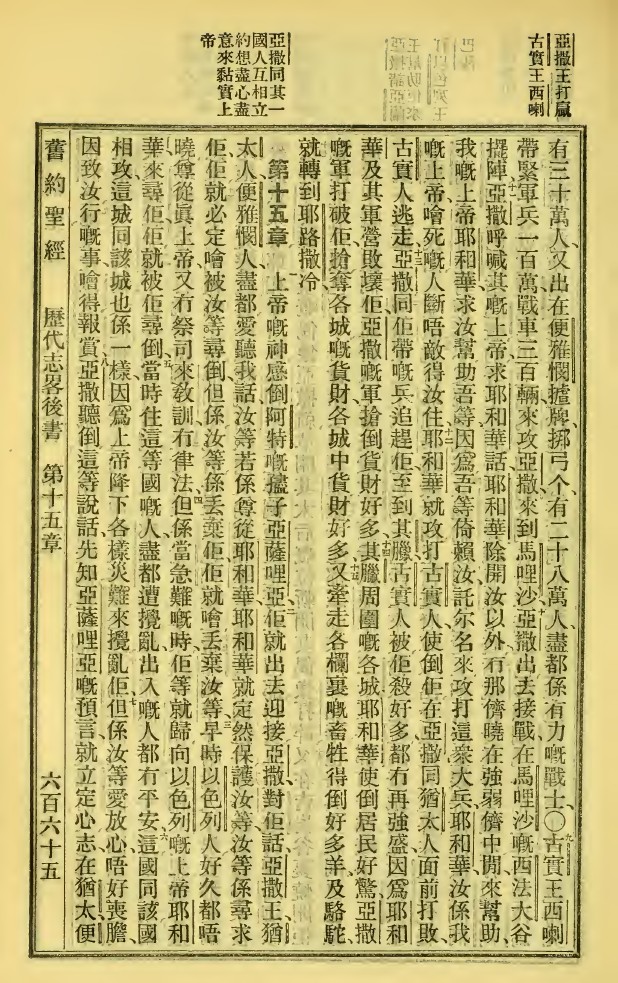 亞撒王打贏
古實王西喇
亞撒同其一
國人互相立
約想盡心盡
意來黏實上
帝
有三十萬人又出在便雅憫揸牌挷弓个有二十八萬人盡都係有力嘅戰士〇九古實王西喇
帶緊軍兵一百萬戰車三百輛來攻亞撒來到馬哩沙十亞撒出去接戰在馬哩沙嘅西法大谷
擺陣十一亞撒呼喊其嘅上帝求耶和華話耶和華除開汝以外冇那儕曉在強弱儕中間來幫助
我嘅上帝耶和華求汝幫助吾等因爲吾等倚賴汝託尔名來攻打這衆大兵耶和華汝係我
嘅上帝噲死嘅人斷唔敵得汝住十二耶和華就攻打古實人使倒佢在亞撒同猶太人面前打敗
古實人逃走十三亞撒同佢帶嘅兵追趕佢至到其臘古實人被佢殺好多都冇再強盛因爲耶和
華及其軍營敗壞佢亞撒嘅軍搶倒貨財好多十四其臘周圍嘅各城耶和華使倒居民好驚亞撒
嘅軍打破佢搶奪各城嘅貨財各城中貨財好多十五又牽走各欄裏嘅畜牲得倒好多羊及駱駝
就轉到耶路撒冷
第十五章 一上帝嘅神感倒阿特嘅孻子亞薩哩亞二佢就出去迎接亞撒對佢話亞撒王猶
太人便雅憫人盡都愛聽我話汝等若係尊從耶和華耶和華就定然保護汝等汝等係尋求
佢佢就必定噲被汝等尋倒但係汝等係丟棄佢佢就噲丟棄汝等三早時以色列人好久都唔
曉尊從眞上帝又冇祭司來敎訓冇律法四但係當急難嘅時佢等就歸向以色列嘅上帝耶和
華來尋佢佢就被佢尋倒五當時住這等國嘅人盡都遭攪亂出入嘅人都冇平安六這國同該國
相攻這城同該城也係一樣因爲上帝降下各樣災難來攪亂佢七但係汝等愛放心唔好喪膽
因致汝行嘅事噲得報賞八亞撒聽倒這等說話先知亞薩哩亞嘅預言就立定心志在猶太便
舊約聖經 歷代志畧後書 第十五章 六百六十五